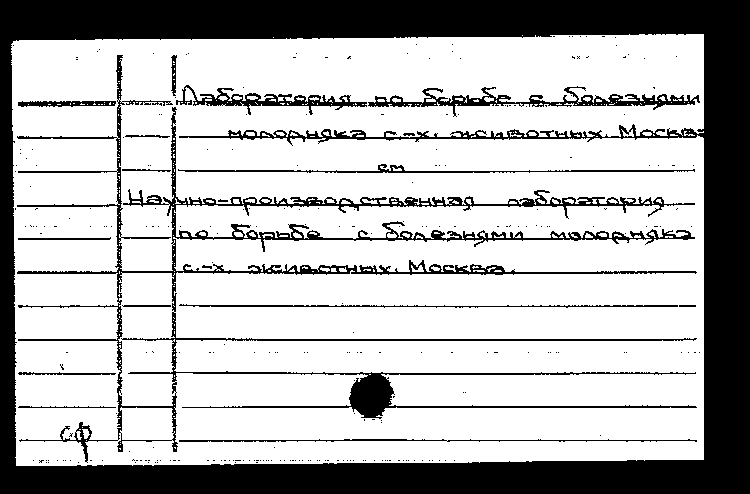 Лаборатория по борьбе с болезнями
молодняка с.-х. животных. Москва
см
Научно-производственная лаборатория
по борьбе с болезнями молодняка
с.-х. животных. Москва.
сф